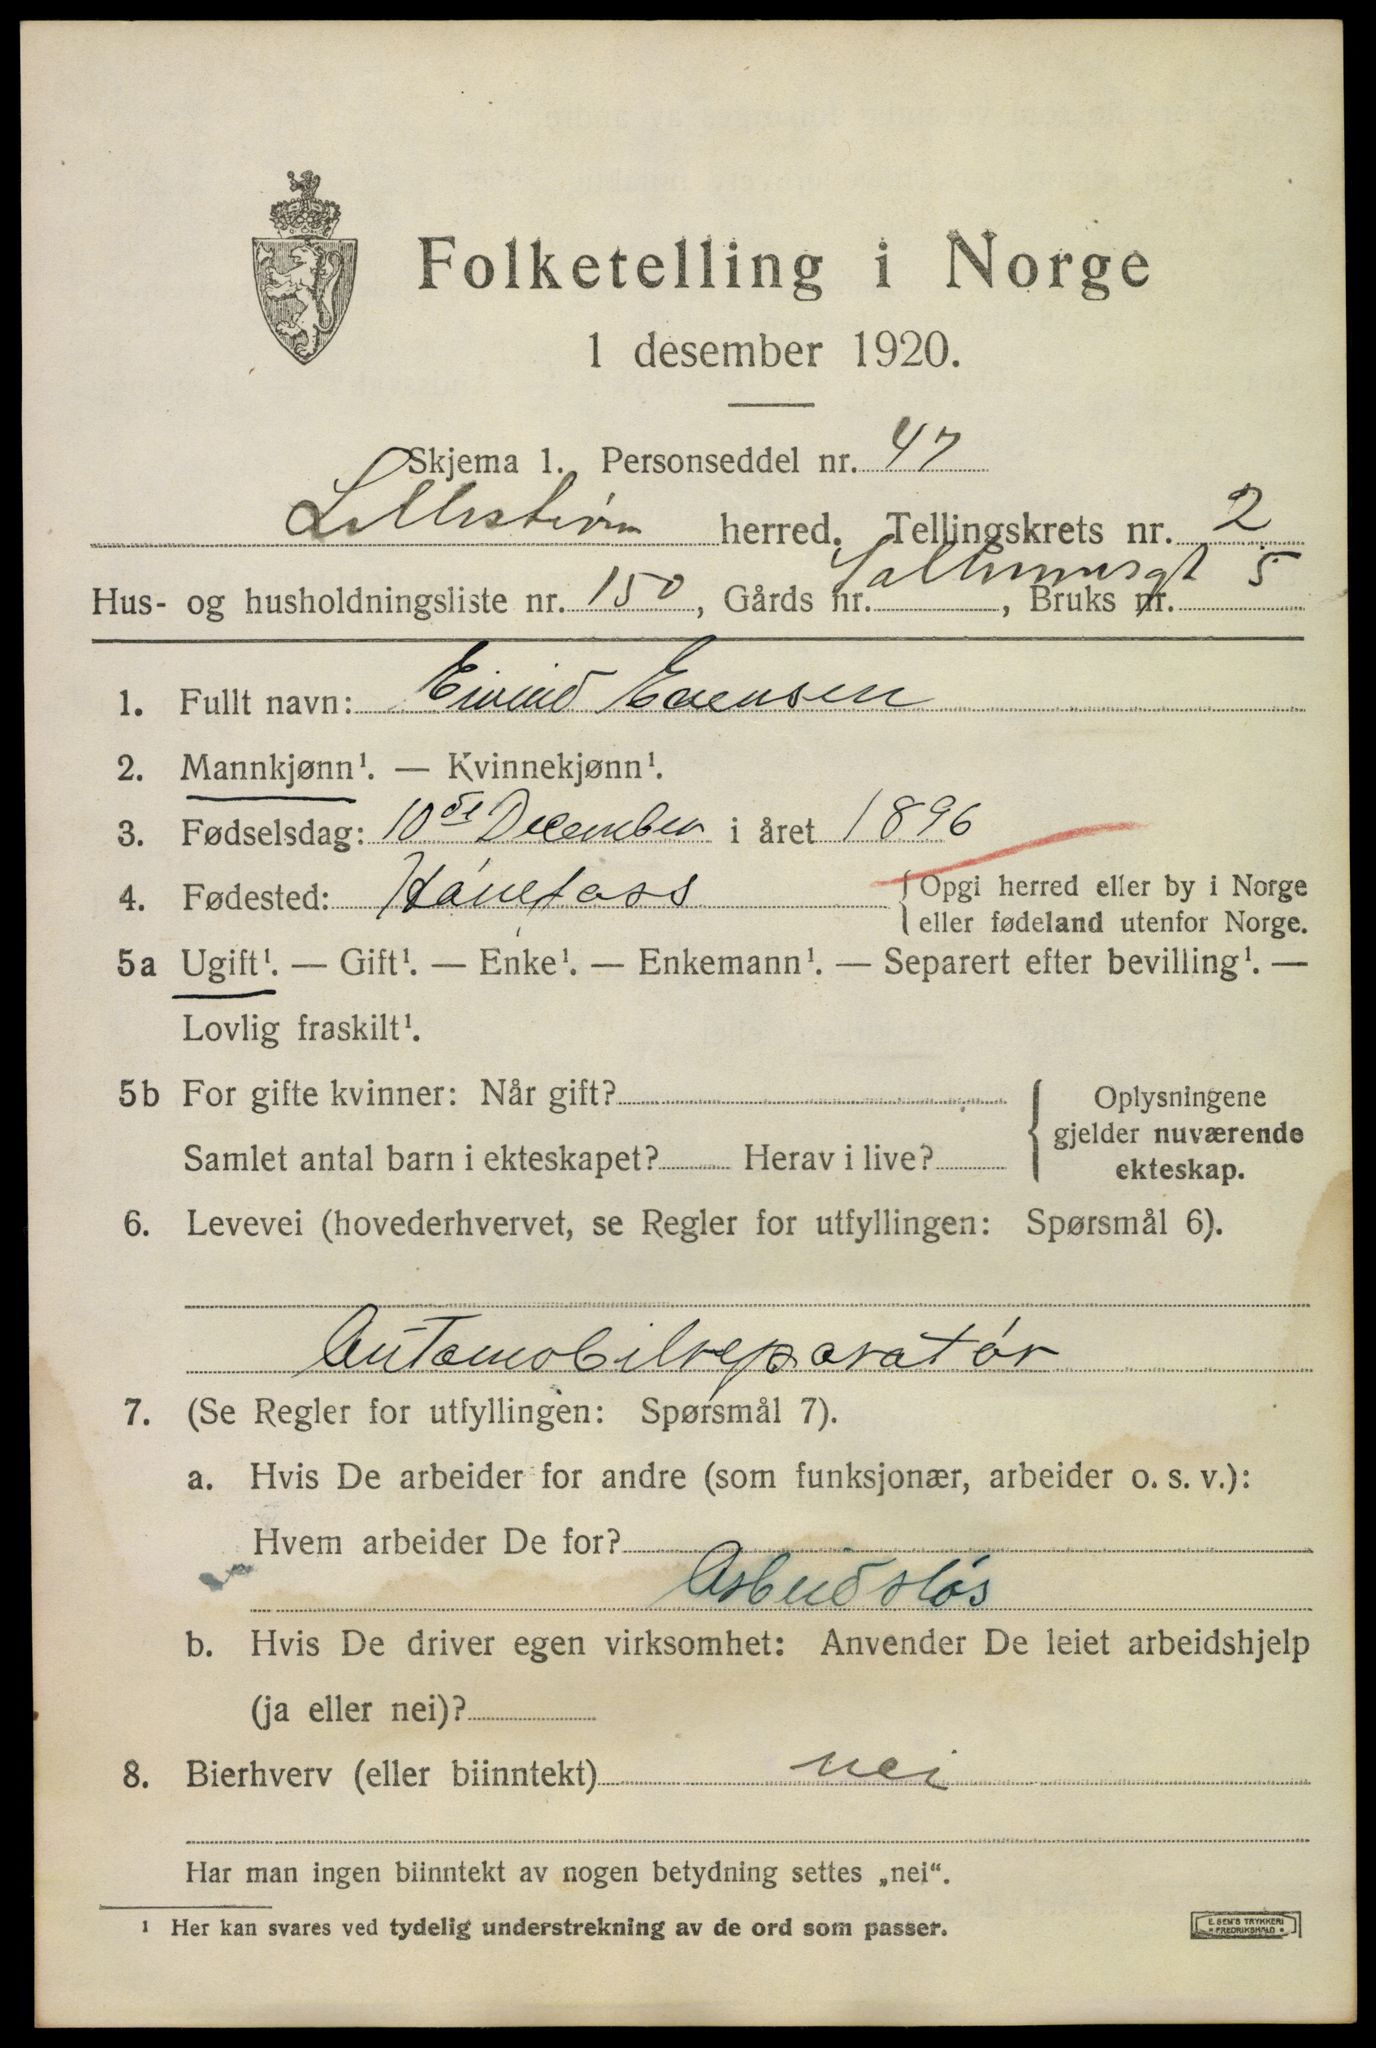 Folketelling i Norge
1 desember 1920.
Skjema 1. Personseddel nr. 47
Lillestrøm herred. Tellingskrets nr. 2
Hus- og husholdningsliste nr. 150, Gårds nr. , Bruks nr. 5
1. Fullt navn: Eivind Evensen
2. Mannkjønn¹. — Kvinnekjønn¹.
3. Fødselsdag: 10de December i året 1896
4. Fødested: Hønefoss {Opgi herred eller by i Norge
eller fødeland utenfor Norge.
5a Ugift¹. — Gift¹. — Enke¹. — Enkemann¹. — Separert efter bevilling¹. —
Lovlig fraskilt¹.
5b For gifte kvinner: Når gift?
Samlet antal barn i ekteskapet? Herav i live?
{Oplysningene
gjelder nuværende
ekteskap.
6. Levevei (hovederhvervet, se Regler for utfyllingen: Spørsmål 6).
Automobilreparatør
7. (Se Regler for utfyllingen: Spørsmål 7).
a. Hvis De arbeider for andre (som funksjonær, arbeider o. s. v.):
Hvem arbeider De for?
Arbeidsløs
b. Hvis De driver egen virksomhet: Anvender De leiet arbeidshjelp
(ja eller nei)?
8. Bierhverv (eller biinntekt) nei
Har man ingen biinntekt av nogen betydning settes „nei“.
¹ Her kan svares ved tydelig understrekning av de ord som passer.
E. SEM'S TRYKKERI
FREDRIKSHALD